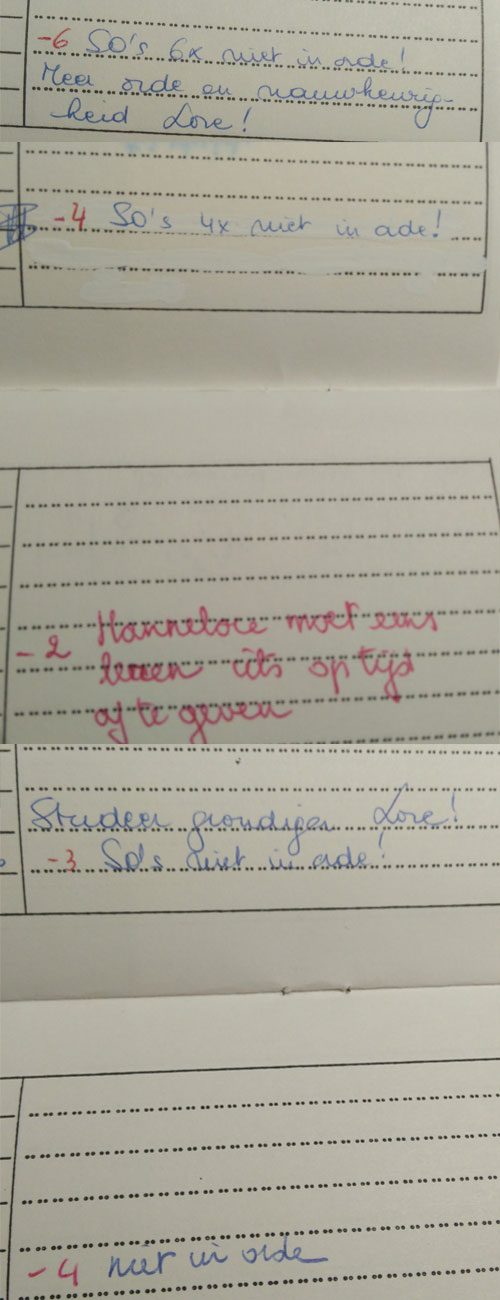 -6 SO's 6x niet in orde!
Meer orde en nauwkeurig-
heid Lore!
-4 SO's 4x niet in orde!
-2 Hannelore moet eens
leren iets op tijd
af te geven
Studeer grondiger Lore!
-3 SO's niet in orde!
-4 niet in orde